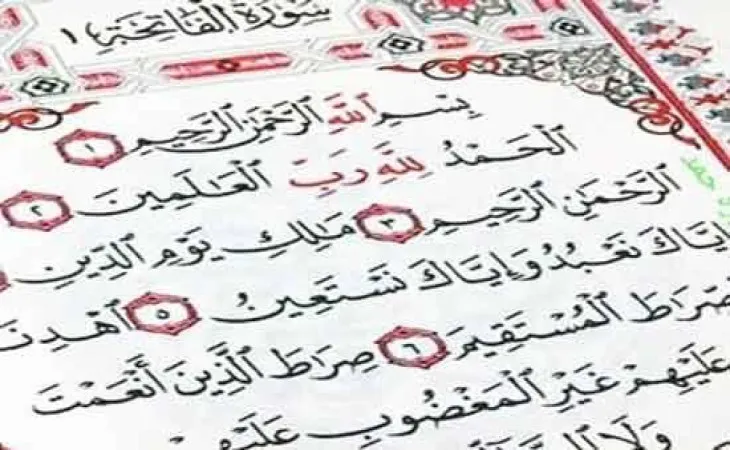 سُورَةُ الْفَاتِحَةِ ١
بِسْمِ ٱللَّهِ ٱلرَّحْمَٰنِ ٱلرَّحِيمِ ١
ٱلْحَمْدُ لِلَّهِ رَبِّ ٱلْعَٰلَمِينَ ٢
ٱلرَّحْمَٰنِ ٱلرَّحِيمِ ٣ مَٰلِكِ يَوْمِ ٱلدِّينِ
إِيَّاكَ نَعْبُدُ وَإِيَّاكَ نَسْتَعِينُ ٥ ٱهْدِنَا
صِّرَٰطَ ٱلْمُسْتَقِيمَ ٦ صِرَٰطَ ٱلَّذِينَ أَنْعَمْتَ
عَلَيْهِمْ غَيْرِ ٱلْمَغْضُوبِ عَلَيْهِمْ
وَلَا